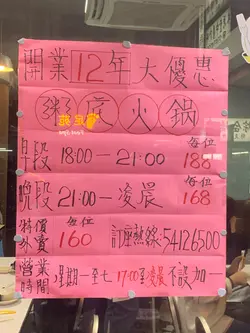 開業12年大優惠
粥底火鍋
早段 18:00-21:00 每位 188
晚段 21:00-凌晨 每位 168
特價外賣 每位 160 訂座熱線:54126500
營業時間 星期一至七 17:00至凌晨 不設加一